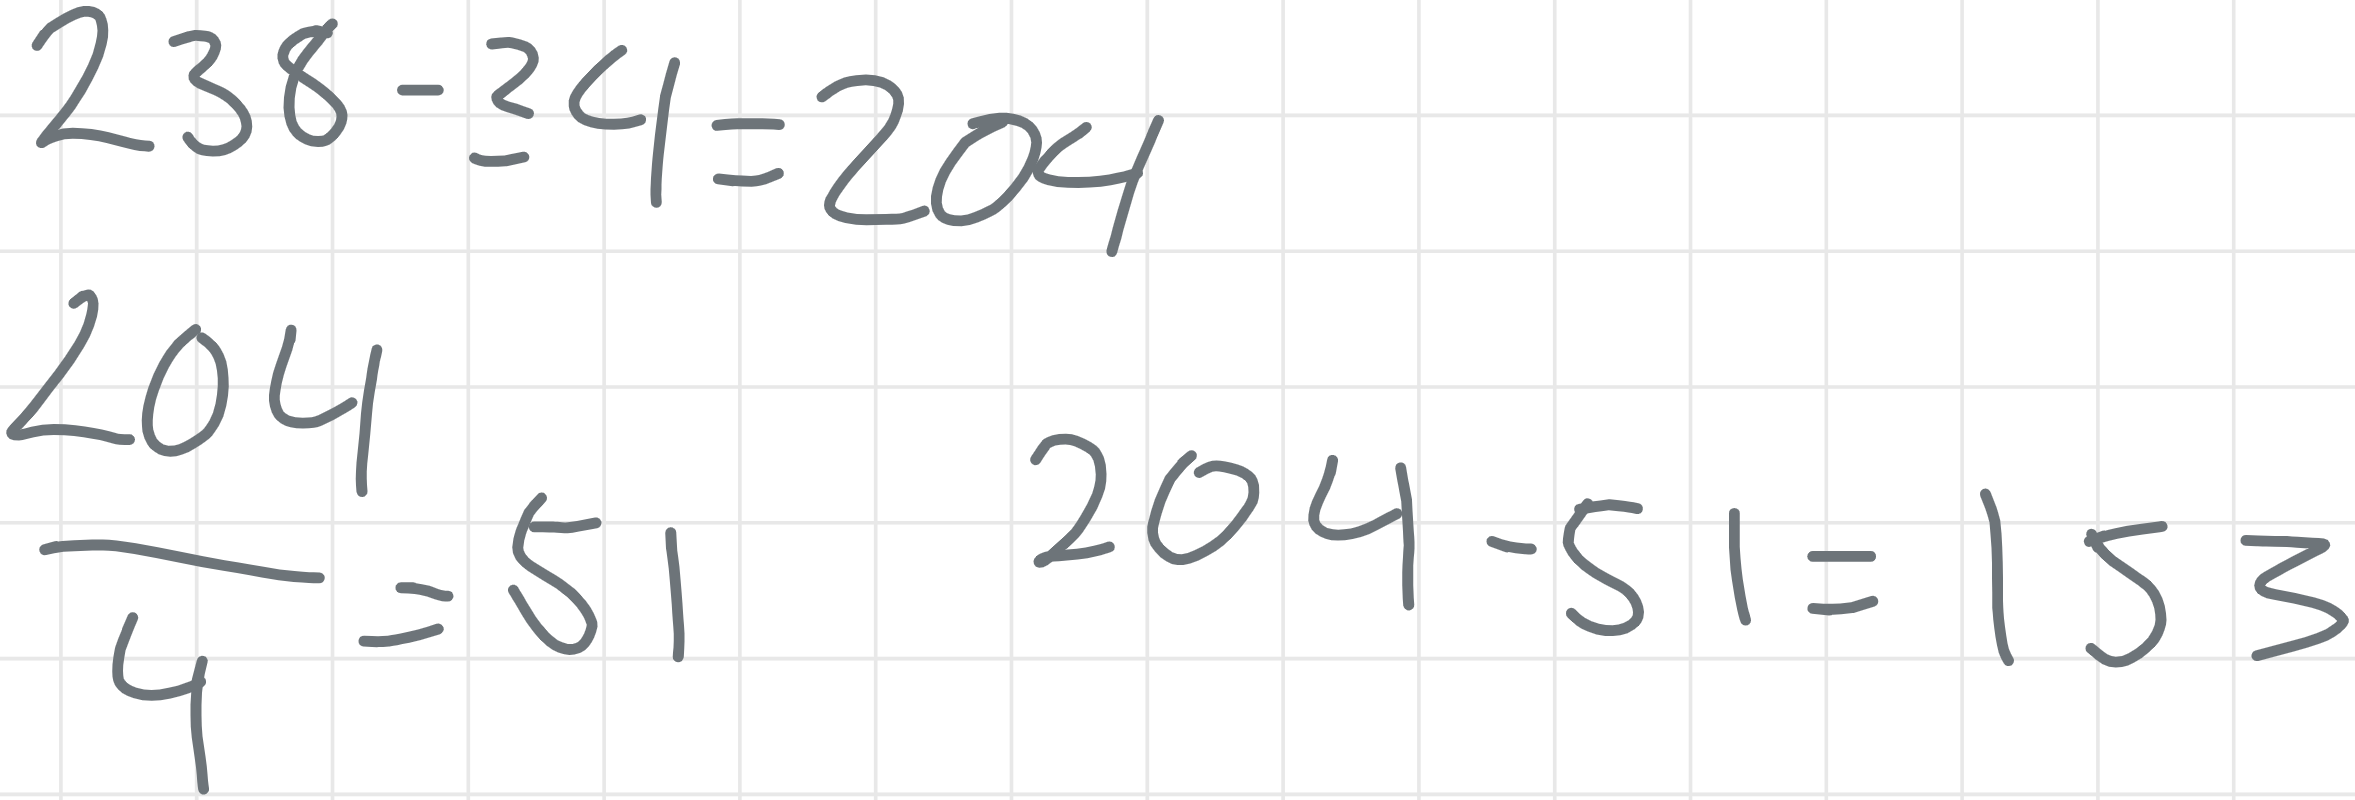 238-34=204
204
4
=51
204-51=153